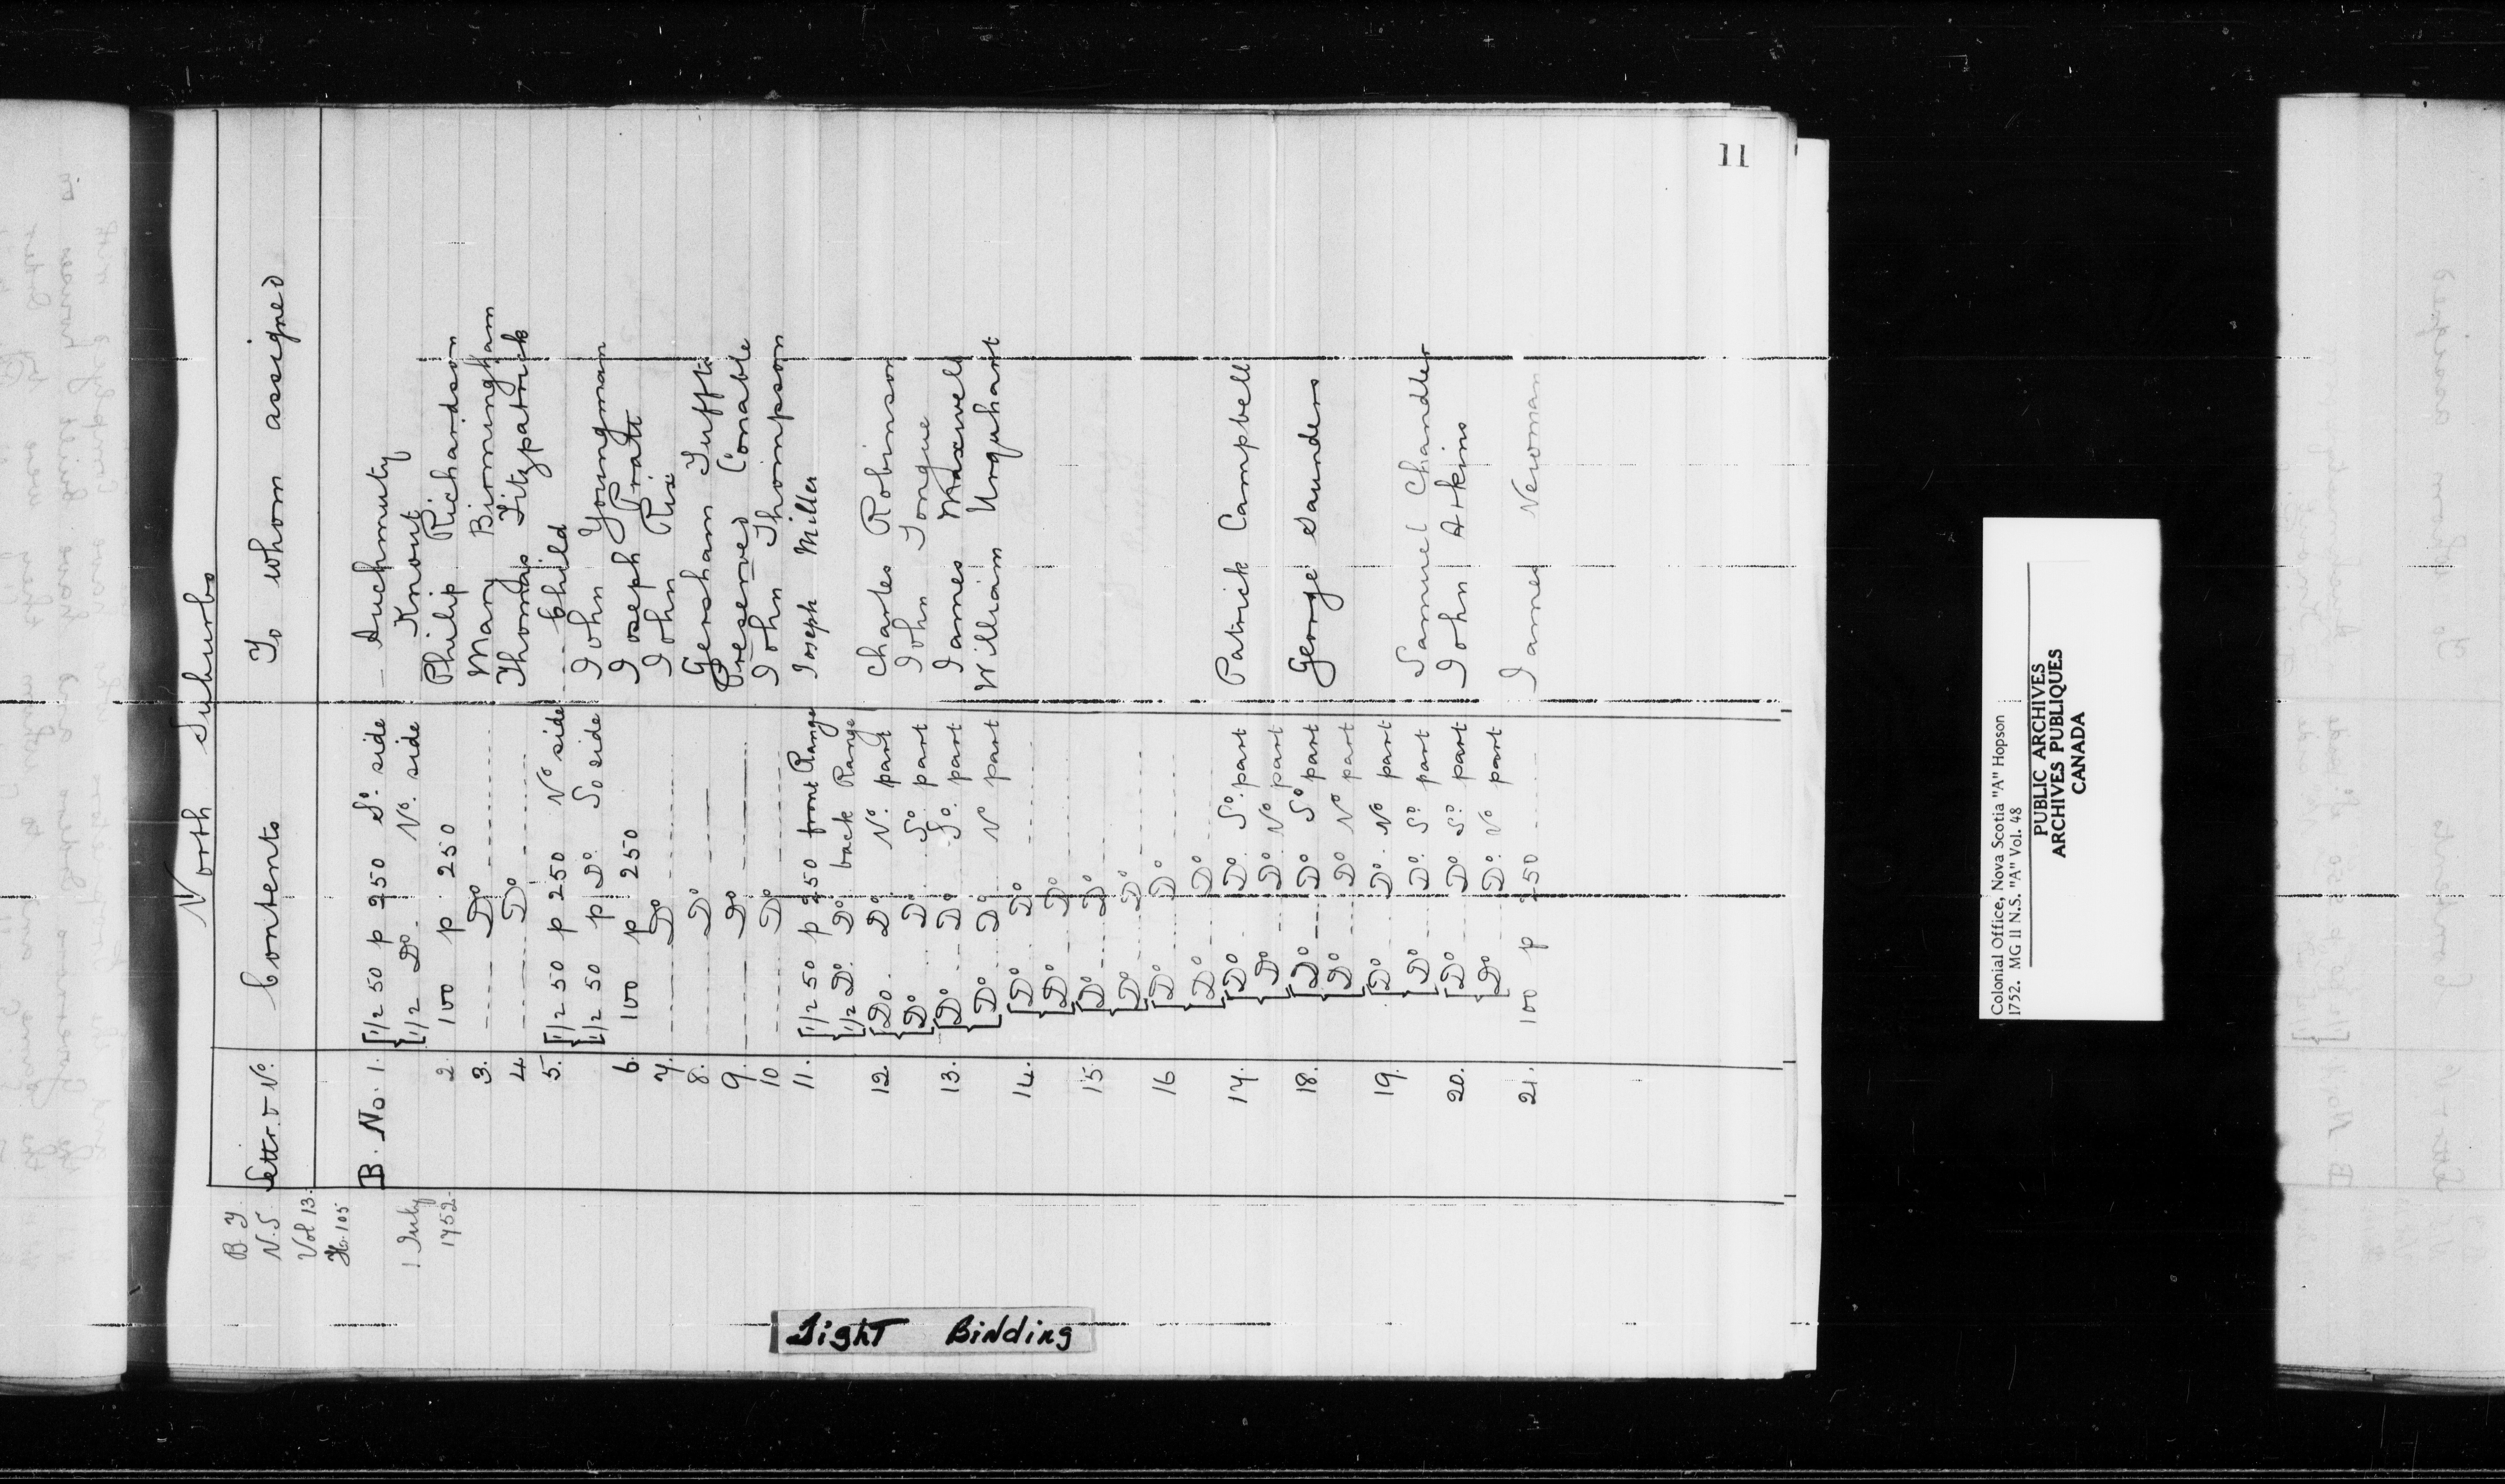 11
North Suburbs
B. T.
N.S
Vol 13.
H. 105
1 July
1752.
Lettr & No. Contents To whom assigned
B. No. 1. [1/2 50 p 250 So. side — Auchmuty
[1/2 Do. No. side Knout
2 100 p 250 Philip Richardson
3. ---- Do ---- Mary Birmingham
4. ---- Do ---- Thomas Fitzpatrick
5. [1/2 50 p 250 No side --- Child
[1/2 50 p Do. So side John Youngman
6. 100 p 250 Joseph Pratt
7. ---- Do ---- John Rix
8. ---- Do ---- Gersham Tuffts
9. ---- Do ---- Preserved Conable
10 ---- Do ---- John Thompson
11. [1/2 50 p 250 front Range Joseph Miller
[1/2 Do. Do. back Range
12. [Do. Do. No. part Charles Robinson
[Do .. Do. So. part John Tongue
13. [Do ... Do. So. part James Maxwell
[Do. .. Do. No part William Urquhart
14. [Do ---- Do ----
[Do ---- Do
15. [Do ---- Do ----
[Do ---- Do ----
16 [Do ---- Do
[Do ---- Do
17. [Do ---- Do. So. part Patrick Campbell
[Do ---- Do. No part
18. [Do ---- Do So part George Saunders
[Do ---- Do No part
19. [Do .. Do. No part
[Do ---- Do. So part Samuel Chandler
20. [Do ---- Do So. part John Atkins
[Do ---- Do. No part
21. 100 p 250 ---- James Newman
Tight Binding
Colonial Office, Nova Scotia "A" Hopson
1752. MG 11 N.S. "A" Vol. 48
PUBLIC ARCHIVES
ARCHIVES PUBLIQUES
CANADA